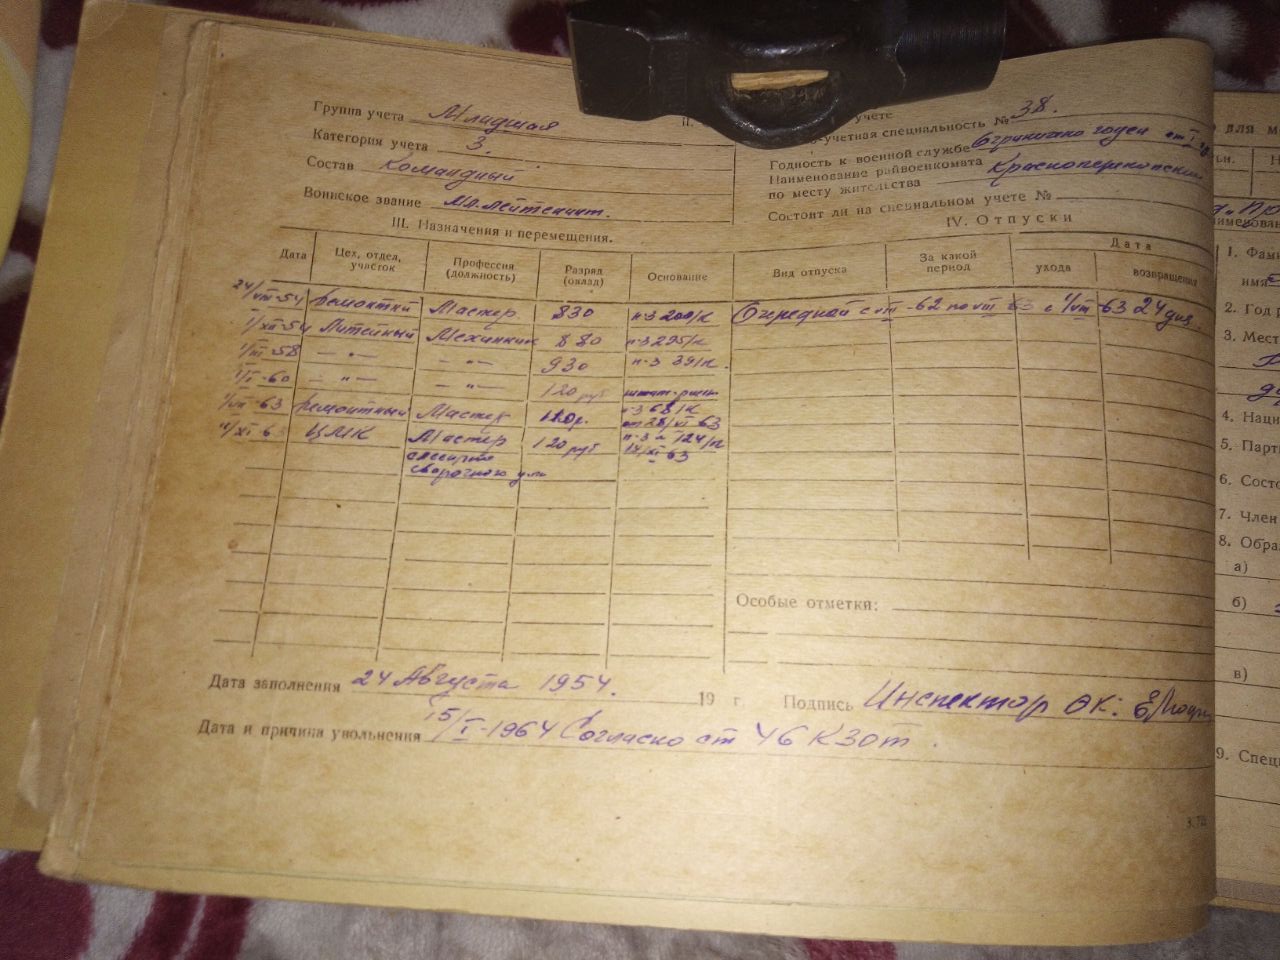 Группа учета Младшая
Категория учета 3.
Состав Командный
Воинское звание Мл. лейтенант.
II.
учете
учетная специальность № 38.
Годность к военной службе Огранично годен ст. I
Наименование райвоенкомата
по месту жительства Красноперекопский
Состоит ли на специальном учете №
III. Назначения и перемещения.
Дата Цех, отдел, участок Профессия (должность) Разряд (оклад) Основание
24/VIII-54 Ремонтный Мастер 830 п-з 200/к
1/XII-54 Литейный Механник 880 п-з 295/к
1/III-58 — " — — " — 930 п-з 39/к.
1/I-60 — " — — " — 120 руб штат-расп
1/VII-63 Ремонтный Мастер 120р. п-з 68/к от 28/VI 63
11/XI-63 ЦМК Мастер слесарно сборочного уч. 120 руб п-з № 124/к 14/XI 63
IV. Отпуски
Вид отпуска За какой период Дата
ухода возвращения
Очередной с VII-62 по VII 63 с 1/VII-63 24 дня.
Особые отметки:
Дата заполнения 24 Августа 1954. 19 г. Подпись Инспектор ОК:
Дата и причина увольнения 15/I-1964 Согласно ст 46 КЗОТ.
для
1. Фам
имя
2. Год р
3. Мест
4. Наци
5. Парт
6. Состо
7. Член
8. Обра
а)
б)
в)
9. Спец